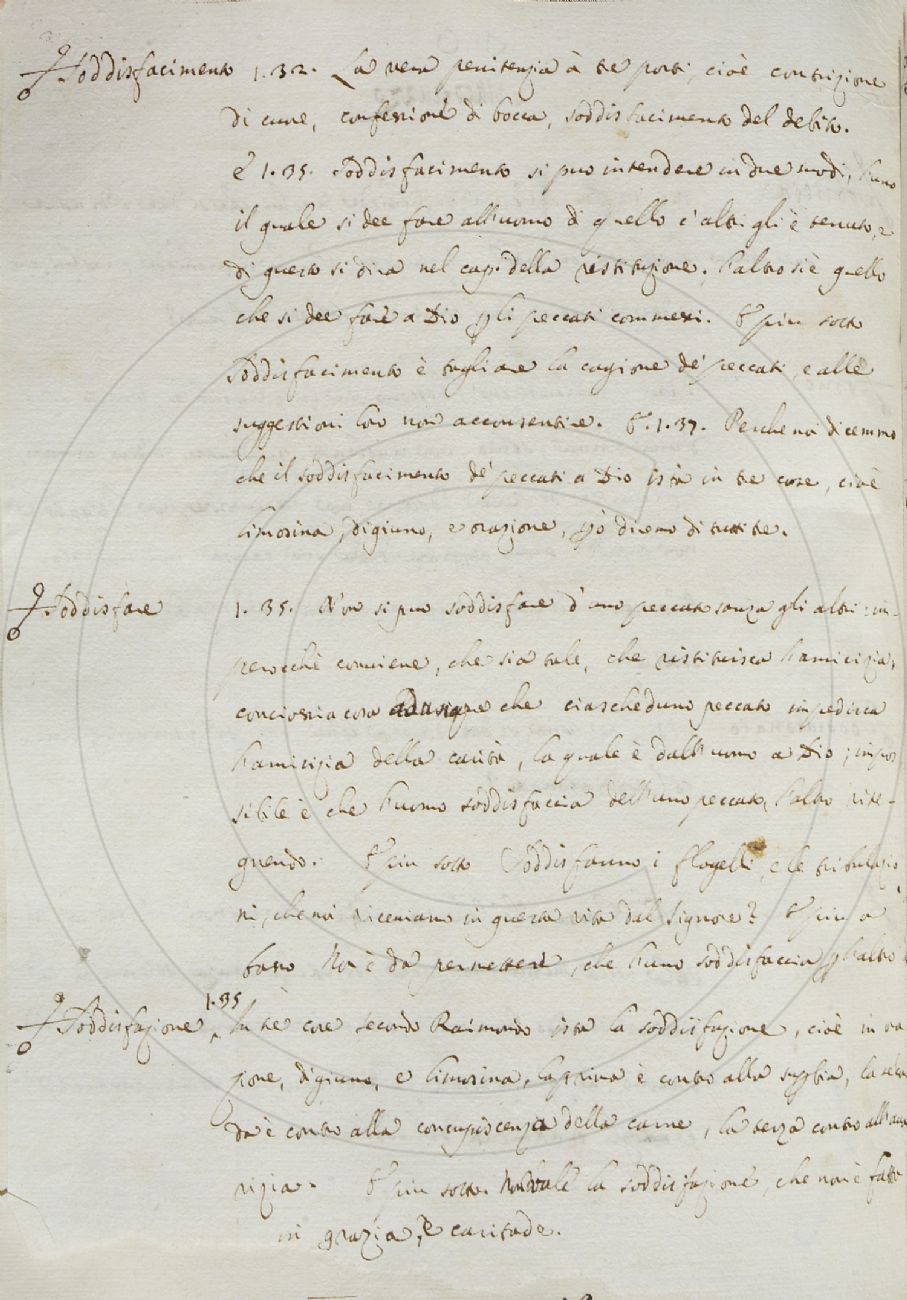 Soddisfacimento 1.32. La vera penitenzia à tre parti, cioè contrizione
di cuore, confessione di bocca, soddisfacimento del debito.
E 1.35. Soddisfacimento si può intendere in due modi, l'uno
il quale si dee fare all'uomo di quello c'altri gli è tenuto, e
di questo si dirà nel cap. della restituzione. l'altro si è quello
che si dee fare a Dio p gli peccati commessi. E più sotto
Soddisfacimento è tagliare la cagione de' peccati, e alle
suggestioni loro non acconsentire. E. 1.37. Perchè noi dicemmo
che il soddisfacimento de' peccati a Dio istà in tre cose, cioè
limosina, digiuno, e orazione, p̱ò diremo di tutte tre.
Soddisfare 1. 35. Non si può soddisfare d'uno peccato sanza gli altri: im-
perocchè conviene, che sia tale, che ristituisca l'amicizia,
conciossiacosa che ciascheduno peccato impedisca
l'amicizia della carità, la quale è dall'uomo a Dio; impos
sibile è che l'uomo soddisfaccia dell'uno peccato, l'altro rite-
gnendo. E più sotto Soddisfanno i flagelli, e le tribulazio
ni, che noi riceviamo in questa vita dal Signore? E più a
basso Non è da permettere, che l'uno soddisfaccia p l'altro
1.35
Soddisfazione In tre cose secondo Raimondo istà la soddisfazione, cioè in ora
zione, digiuno, e limosina, la prima è contro alla suꝑbia, la secon
da è contro alla concupiscenza della carne, la terza contro all'ava
rizia. E più sotto. Non vale la soddisfazione, che non è fatta
in grazia, e caritade.